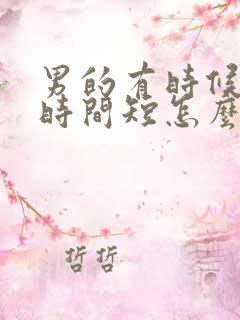 男的有時候
時間短怎麼
哲哲